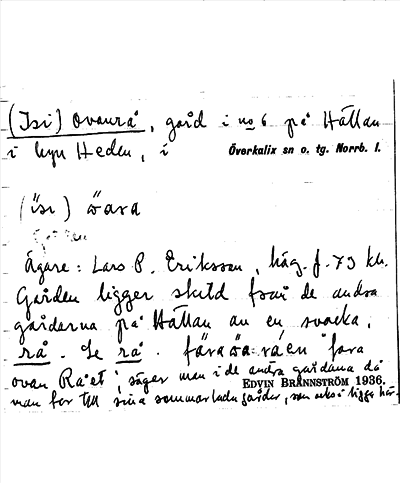 (Isi) Ovanrå, gård i no 6 på Hällan
i byn Heden, i Överkalix sn o. tg. Norrb. l.
(isi)
Ägare: Lars P. Eriksson, häg. f. 73 kh.
Gården ligger skild från de andra
gårdarna på Hällan av en svacka,
rå. Se rå. fara
ovan Rået, säger man i de andra gårdarna då
EDVIN BRÄNNSTRÖM 1936.
man far till sina sommarladugårdar, som också ligga här.